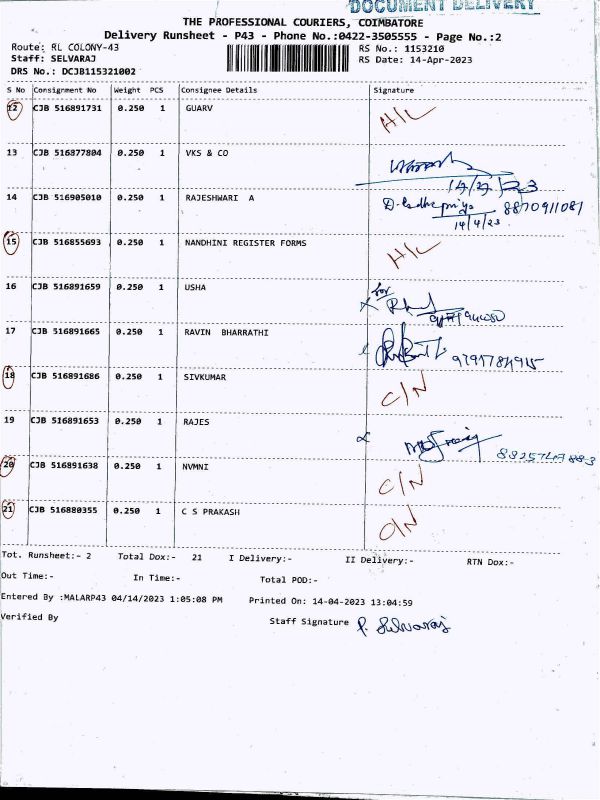 DOCUMENT DELIVERY
THE PROFESSIONAL COURIERS, COIMBATORE
Delivery Runsheet - P43 - Phone No.:0422-3505555 - Page No.:2
Route: RL COLONY-43 RS No.: 1153210
Staff: SELVARAJ RS Date: 14-Apr-2023
DRS No.: DCJB115321002
S No Consignment No Weight PCS Consignee Details Signature
12 CJB 516891731 0.250 1 GUARV H/L
13 CJB 516877804 0.250 1 VKS & CO
14 CJB 516905010 0.250 1 RAJESHWARI A 8870911081
14/4/23
15 CJB 516855693 0.250 1 NANDHINI REGISTER FORMS H/L
16 CJB 516891659 0.250 1 USHA for
17 CJB 516891665 0.250 1 RAVIN BHARRATHI
18 CJB 516891686 0.250 1 SIVKUMAR C/N
19 CJB 516891653 0.250 1 RAJES
20 CJB 516891638 0.250 1 NVMNI C/N
21 CJB 516880355 0.250 1 C S PRAKASH C/N
Tot. Runsheet:- 2 Total Dox:- 21 I Delivery:- II Delivery:- RTN Dox:-
Out Time:- In Time:- Total POD:-
Entered By :MALARP43 04/14/2023 1:05:08 PM Printed On: 14-04-2023 13:04:59
Verified By Staff Signature P. Selvaraj